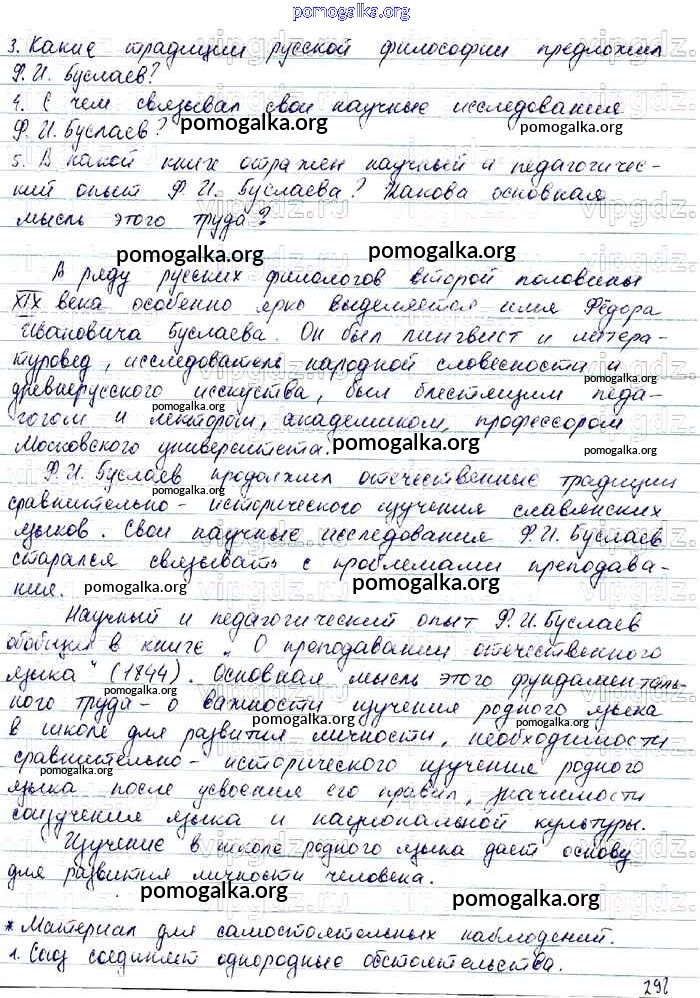 pomogalka.org
3. Какие традиции русской философии предложил
Ф. И. Буслаев?
4. С чем связывал свои научные исследования
Ф. И. Буслаев?
pomogalka.org
pomogalka.org
5. В какой книге отражен научный и педагогичес-
кий опыт Ф. И. Буслаева? Какова основная
мысль этого труда?
pomogalka.org
pomogalka.org
В ряду русских филологов второй половины
XIX века особенно ярко выделяется имя Фёдора
Ивановича Буслаева. Он был лингвист и литера-
туровед, исследователь народной словесности и
pomogalka.org
древнерусского исскуства, был блестящим педа-
pomogalka.org
гогом и лектором, академиком, профессором
pomogalka.org
Московского университета. pomogalka.org
Ф. И. Буслаев продолжил отечественные традиции
pomogalka.org
сравнительно - исторического изучения славянских
языков. Свои научные исследования Ф. И. Буслаев
старался связывать с проблемами преподава-
ния. pomogalka.org pomogalka.org
Научный и педагогический опыт Ф. И. Буслаев
обобщил в книге „О преподавании отечественного
языка" (1844). Основная мысль этого фундаменталь-
pomogalka.org
ного труда - о важности изучения родного языка
pomogalka.org
в школе для развития личности, необходимости
сравнительно - исторического изучения родного
pomogalka.org
языка после усвоения его правил, значимости
соизучения языка и национальной культуры.
Изучение в школе родного языка дает основу
pomogalka.org
для развития личности человека.
pomogalka.org
pomogalka.org
* Материал для самостоятельных наблюдений.
1. Союз соединяет однородные обстоятельства.
pomogalka.org
292